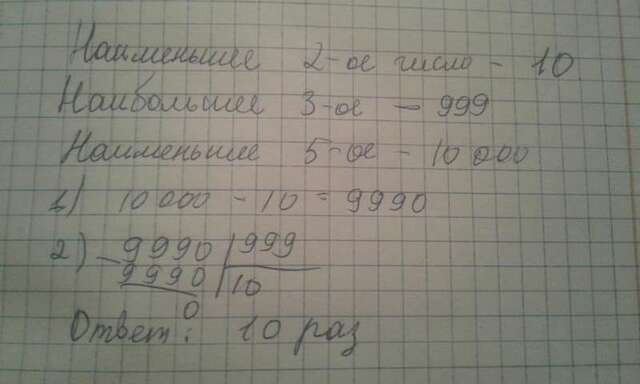 Наименьшее 2-ое число - 10
Наибольшее 3-ое - 999
Наименьшее 5-ое - 10 000
1) 10 000 - 10 = 9990
2) - 9990 | 999
9990 | 10
0
Ответ: 10 раз